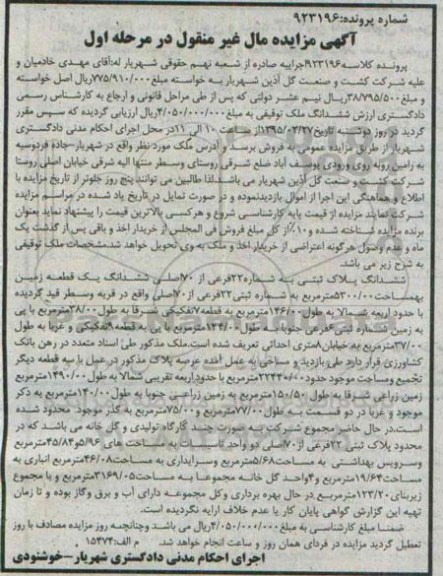 شماره پرونده:۹۲۳۱۹۶
آگهی مزایده مال غیر منقول در مرحله اول
پرونده کلاسه۹۲۳۱۹۶اجراییه صادره از شعبه نهم حقوقی شهریار له:آقای مهدی خادمیان و
علیه شرکت کشت و صنعت گل آذین شهریار به خواسته مبلغ۷۷۵/۹۱۰/۰۰۰ریال اصل خواسته
و مبلغ۳۸/۷۹۵/۵۰۰ریال نیم عشر دولتی که پس از طی مراحل قانونی و ارجاع به کارشناس رسمی
دادگستری ارزش ششدانگ ملک توقیفی به مبلغ۴/۰۵۰/۰۰۰/۰۰۰ریال ارزیابی گردیده که سپس مقرر
گردید در روز دوشنبه تاریخ۱۳۹۵/۰۲/۲۷از ساعت ۱۰ الی ۱۱در محل اجرای احکام مدنی دادگستری
شهریار از طریق مزایده عمومی به فروش برسد و آدرس ملک موردنظر واقع در شهریار-جاده فردوسیه
به رامین روبه روی ورودی یوسف آباد ضلع شرقی روستای وسطر منتها الیه شرقی خیابان اصلی روستا
شرکت کشت و صنعت گل آذین شهریار می باشد.لذا طالبین می توانند پنج روز جلوتر از تاریخ مزایده با
اطلاع و هماهنگی این اجرا از اموال بازدیدنموده و در صورت تمایل در تاریخ یاد شده در مراسم مزایده
شرکت نمایند مزایده از قیمت پایه کارشناسی شروع و هرکسی بالاترین قیمت را پیشنهاد نماید بعنوان
برنده مزایده شناخته شده و۱۰٪از کل مبلغ فروش فی المجلس از خریدار اخذ و باقی پس از گذشت یک
ماه و عدم وصول هرگونه اعتراضی از خریدار اخذ و ملک به وی تحویل خواهد شد.مشخصات ملک توقیفی
به شرح زیر می باشد.
ششدانگ پلاک ثبتی به شماره۲۲فرعی از ۷۰اصلی ششدانگ یک قطعه زمین
بهمساحت۵۳۰۰/۰۰مترمربع به شماره ثبتی ۲۲فرعی از۷۰اصلی واقع در قریه وسطر قید گردیده
با حدود اربعه شمالا به طول۱۴۶/۰۰مترمربع به قطعه۷تفکیکی شرقا به طول۳۸/۰۰مترمربع با پی
به زمین شماره ثبتی۶فرعی جنوبا به طول۱۴۴/۰۰مترمربع با پی به قطعه۹تفکیکی و غربا به طول
۳۷/۰۰مترمربع به خیابان۸متری احداثی تعریف شده است.ملک مذکور طی اسناد متعدد در رهن بانک
کشاورزی قرار دارد.طی بازدید و مساحی به عمل آمده عرصه پلاک مذکور در عمل با سه قطعه دیگر
تجمیع ومساحت موجود حدود۲۲۴۳۰/۰۰مترمربع با حدوداربعه تقریبی شمالا به طول۱۴۹۰/۰۰مترمربع
زمین زراعی شرقا به طول ۱۵۰/۵۰مترمربع به زمین زراعی جنوبا به طول۱۴۰/۰۰مترمربع به ذکر
موجود و غربا در دو قسمت به طول۷۷/۰۰مترمربع و۷۵/۰۰مترمربع به گذر موجود محدود شده
است.در حال حاضر مجموع شرکت به صورت چند گارگاه تولیدی و گل خانه می باشند که در
محدود پلاک ثبتی ۲۲فرعی از۷۰اصلی دو واحد تاسیسات به مساحت های ۵/۹۶و۴۵/۸۴مترمربع
وسرویس بهداشتی به مساحت۵/۶۸مترمربع وسرایداری به مساحت۴۶/۰۸مترمربع انباری به
مساحت۱۹/۶۴مترمربع و ۴واحد گل خانه مجموعا به مساحت۳۱۶۹/۰۵مترمربع و با مجموع
زیربنای۱۲۳/۲۰مترمربع در حال بهره برداری وکل مجموعه دارای آب و برق وگاز بوده و تا زمان
تهیه این گزارش گواهی پایان کار یا عدم خلاف ارایه نگردیده است.
ضمنا مبلغ کارشناسی به مبلغ۴/۰۵۰/۰۰۰/۰۰۰ریال می باشد وچنانچه روز مزایده مصادف با روز
تعطیل گردید مزایده در فردای همان روز و ساعت انجام خواهد شد. م الف:۱۵۴۷۴
اجرای احکام مدنی دادگستری شهریار-خوشنودی